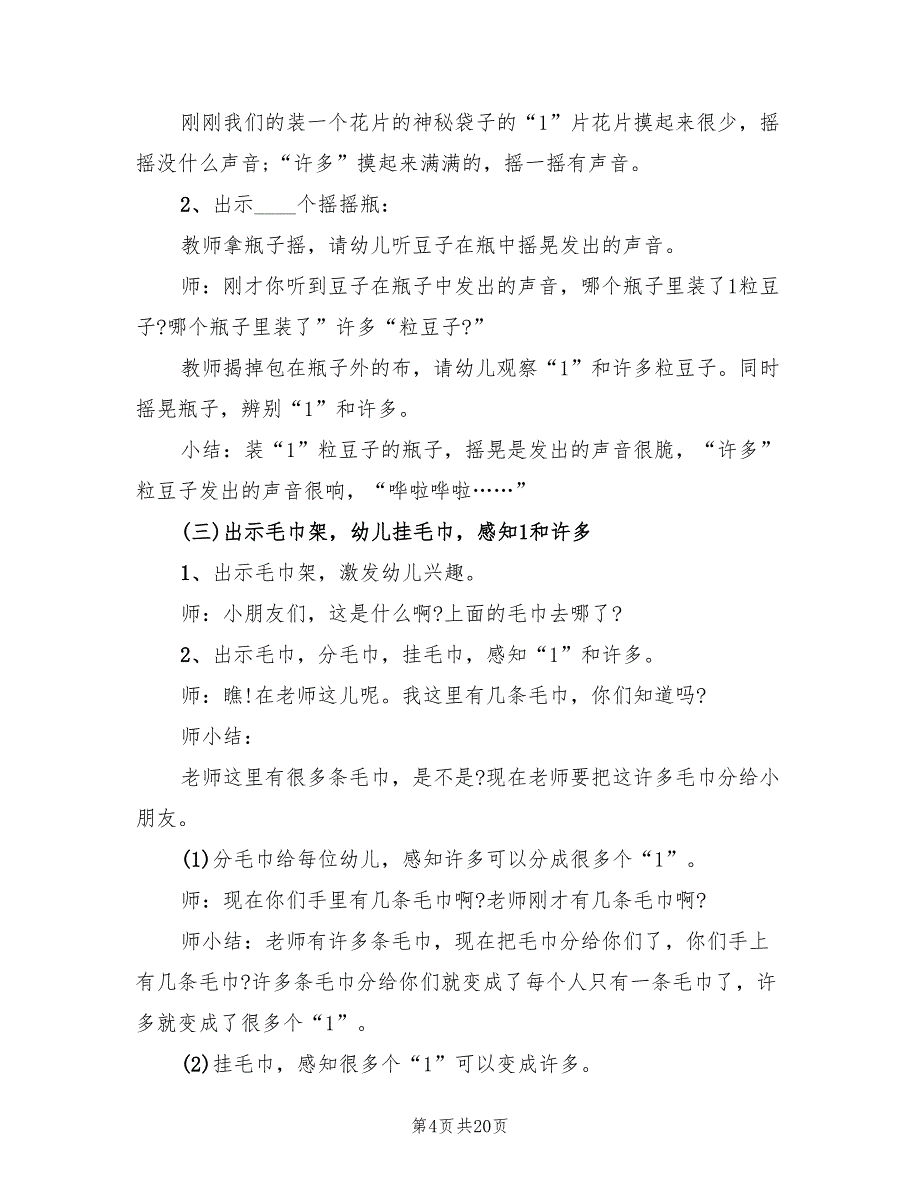 刚刚我们的装一个花片的神秘袋子的“1”片花片摸起来很少，摇
摇没什么声音;“许多”摸起来满满的，摇一摇有声音。
2、出示____个摇摇瓶：
教师拿瓶子摇，请幼儿听豆子在瓶中摇晃发出的声音。
师：刚才你听到豆子在瓶子中发出的声音，哪个瓶子里装了1粒豆
子?哪个瓶子里装了”许多“粒豆子?”
教师揭掉包在瓶子外的布，请幼儿观察“1”和许多粒豆子。同时
摇晃瓶子，辨别“1”和许多。
小结：装“1”粒豆子的瓶子，摇晃是发出的声音很脆，“许多”
粒豆子发出的声音很响，“哗啦哗啦……”
(三)出示毛巾架，幼儿挂毛巾，感知1和许多
1、出示毛巾架，激发幼儿兴趣。
师：小朋友们，这是什么啊?上面的毛巾去哪了?
2、出示毛巾，分毛巾，挂毛巾，感知“1”和许多。
师：瞧!在老师这儿呢。我这里有几条毛巾，你们知道吗?
师小结：
老师这里有很多条毛巾，是不是?现在老师要把这许多毛巾分给小
朋友。
(1)分毛巾给每位幼儿，感知许多可以分成很多个“1”。
师：现在你们手里有几条毛巾啊?老师刚才有几条毛巾啊?
师小结：老师有许多条毛巾，现在把毛巾分给你们了，你们手上
有几条毛巾?许多条毛巾分给你们就变成了每个人只有一条毛巾了，许
多就变成了很多个“1”。
(2)挂毛巾，感知很多个“1”可以变成许多。
第4页共20页